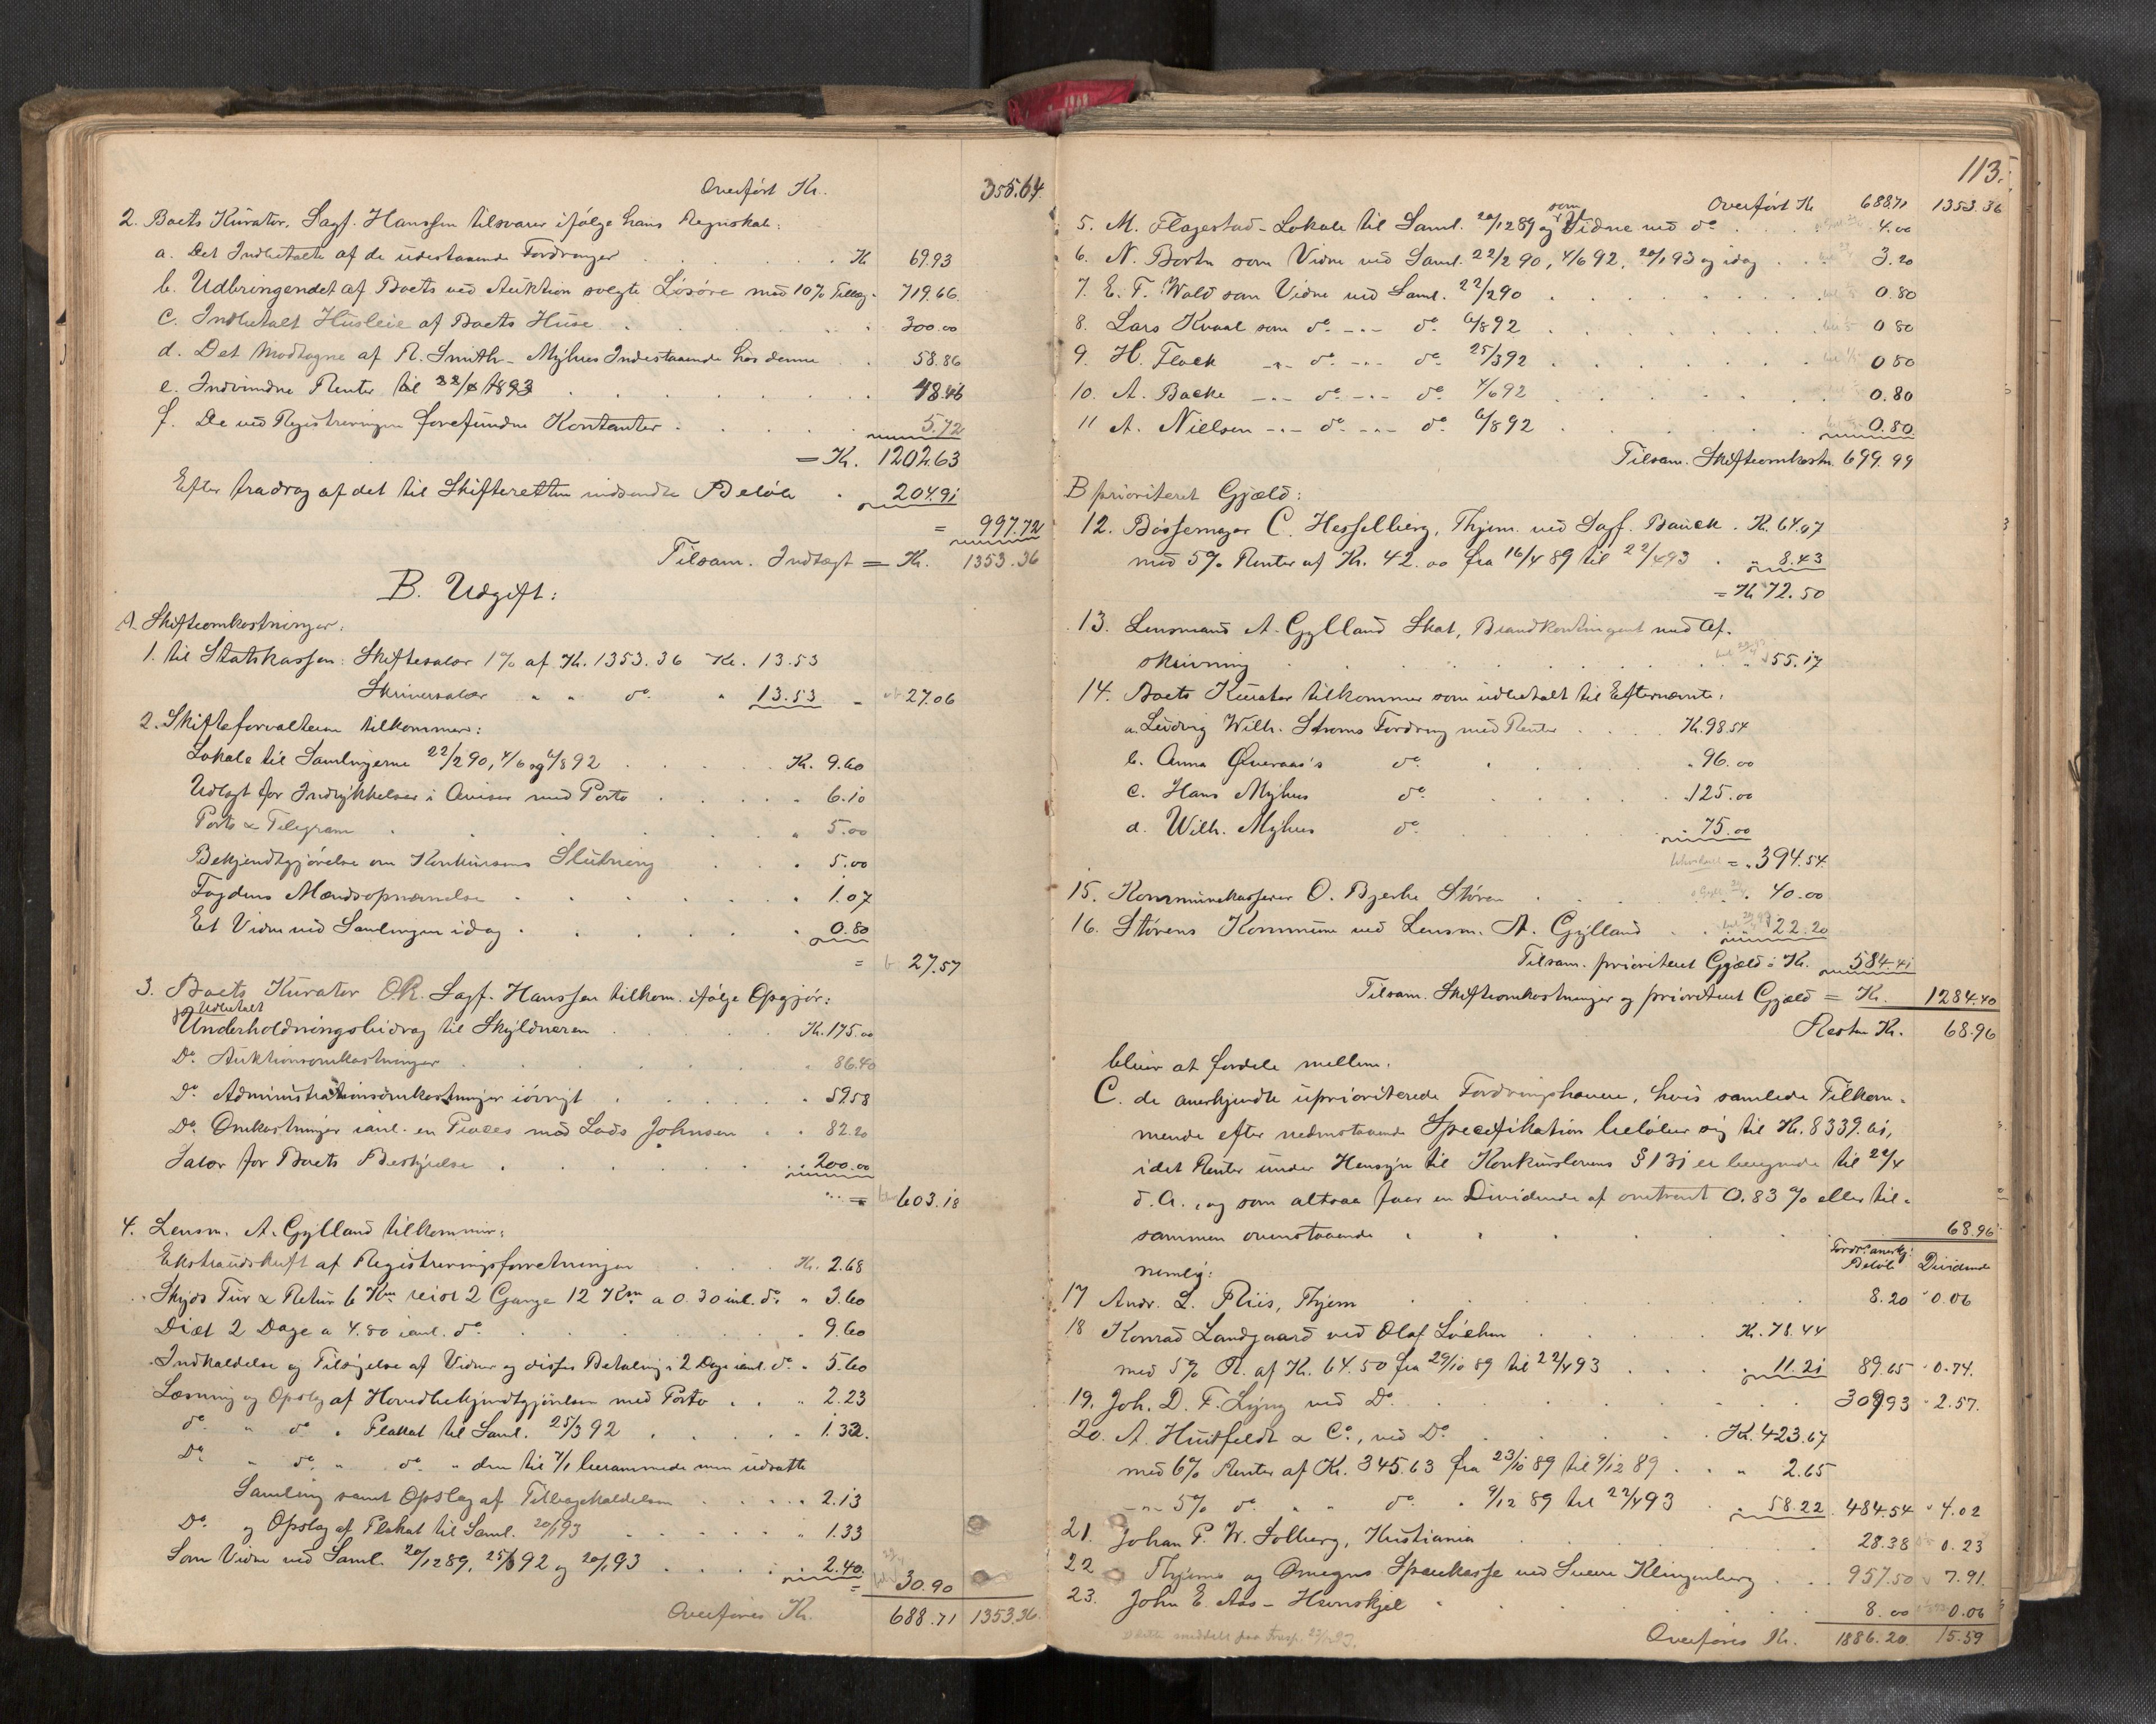 Overført Kr. 355.64
2. Boets Kurator, Sagf. Hanssen tilsvarer ifølge hans Regnskab:
a. Det Indbetalte af de udestaaende Fordringer Kr. 69.93
b. Udbringendet af Boets ved Auktion solgte Løsøre med 10% Tillæg 719.66
c. Indbetalt Husleie af Boets Huse 300.00
d. Det Modtagne af R. Smith - Myhres Indestaaende hos denne 58.86
e. Indvundne Renter til 22/4 1893 48.46
f. De ved Registreringen forefundne Kontanter 5.72
= Kr. 1202.63
Efter fradrag af det til Skifteretten indsendte Beløb 204.91
= 997.72
Tilsam. Indtægt = Kr. 1353.36
B. Udgift:
A. Skifteomkostninger:
1. til Statskassen: Skiftesalær 1% af Kr. 1353.36 Kr. 13.53
Skriversalær " " do. " 13.53 - 27.06
2. Skifteforvalteren tilkommer:
Lokale til Samlingerne 22/2 90, 4/6 og 6/8 92 Kr. 9.60
Udlagt for Indrykkelser i Aviser med Porto " 6.10
Porto & Telegram " 5.00
Bekjendtgjørelse om Konkursens Slutning " 5.00
Fogdens Mændsopnævnelse " 1.07
Et Vidne ved Samlingen idag " 0.80
= 27.57
3. Boets Kurator O.R. Sagf. Hanssen tilkom. ifølge Opgjør:
Udbetalt
Underholdningsbidrag til Skyldneren Kr. 175.00
Do. Auktionsomkostninger " 86.40
Do. Administrationsomkostninger iøvrigt " 59.58
Do. Omkostninger ianl. en Proces mod Lads Johnsen " 82.20
Salær for Boets Bestyrelse " 200.00
= 603.18
4. Lensm. A. Gylland tilkommer:
Ekstraudskrift af Registreringsforretningen Kr. 2.68
Skyds Tur & Retur 6 Km reist 2 Gange 12 Km a 0.30 ianl. do. " 3.60
Diæt 2 Dage a 4.80 ianl. do. " 9.60
Indkaldelse og Tilsigelse af Vidner og disses Betaling i 2 Dage ianl. do. " 5.60
Læsning og Opslag af Hovedbekjendtgjørelsen med Porto " 2.23
do. " do. " Plakat til Saml. 25/3 92 " 1.33.
Do. " do. " do. " den til 7/1 berammede men udsatte
Samling samt Opslag af Tilbagekaldelsen " 2.13
Do. og Opslag af Plakat til Saml. 20/1 93 " 1.33
Som Vidne ved Saml. 20/12 89, 25/3 92 og 20/1 93 " 2.40.
= 30.90
Overføres Kr. 688.71 1353.36
113.
Overført Kr 688.71 1353.36
5. M. Flagestad - Lokale til Saml. 20/12 89 og som Vidne ved do. 4.00
6. N. Borten som Vidne ved Saml. 22/2 90, 4/6 92, 20/1 93 og idag 3.20
7. E. F. Wold som Vidne ved Saml. 22/2 90 0.80
8. Lars Kvaal som do. -"- do. 6/8 92 0.80
9. H. Flock -"- do. -"- do. 25/3 92 0.80
10. A. Backe -"- do. -"- do. 4/6 92 0.80
11 A. Nielsen -"- do. -"- do. 6/8 92 0.80
Tilsam. Skifteomkostn. 699.99
B prioriteret Gjæld:
12. Bøssemager C. Hesselberg, Thjem. ved Sagf. Bauck. Kr. 64.07
med 5% Renter af Kr. 42.00 fra 16/4 89 til 22/4 93 " 8.43
= Kr 72.50
13. Lensmand A. Gylland Skat, Brandkontingent med Af-
skrivning " 55.17
14. Boets Kurator tilkommer som udbetalt til Efternævnte:
a. Ludvig Wilh. Strøms Fordring med Renter Kr. 98.54
b. Anna Øveraas's do. " 96.00
c. Hans Myhres do. " 125.00
d. Wilh. Myhres do. " 75.00
= " 394.54
15. Kommunekasserer O. Bjerke Støren " 40.00
16. Størens Kommune ved Lensm. A. Gylland 22.20
Tilsam. prioriteret Gjæld = Kr. 584.41
Tilsam. Skifteomkostninger og prioriteret Gjæld = Kr. 1284.40
Resten Kr. 68.96
bliver at fordele mellem.
C. de anerkjendte uprioriterede Fordringshavere, hvis samlede Tilkom-
mende efter nedenstaaende Specifikation beløber sig til Kr. 8339.61,
idet Renter under Hensyn til Konkurslovens § 131 er beregnede til 22/4
d. A., og som altsaa faar en Dividende af omtrent 0.83% eller til-
sammen ovenstaaende 68.96
nemlig: Fordr. anerkj. Beløb Dividende
17 Andr. L. Riis, Thjem 8.20 " 0.06
18 Konrad Landgaard ved Olaf Løchen Kr. 78.44
med 5% R. af Kr. 64.50 fra 29/10 89 til 22/4 93 " 11.21 89.65 " 0.74.
19. Joh. D. F. Lyng ved Do. 309.93 " 2.57.
20. A. Huitfeldt & Co., ved Do. Kr. 423.67
med 6% Renter af Kr. 345.63 fra 23/10 89 til 9/12 89 " 2.65
-"- 5% do. " " do. " 9/12 89 til 22/4 93 " 58.22 484.54 " 4.02
21. Johan P. W. Solberg, Kristiania 28.38 0.23
22 Thjems og Omegns Sparekasse ved Sverre Klingenberg 957.50 " 7.91.
23. John E. Aas - Hunskjel 8.00 0.06
Overføres Kr. 1886.20 15.59